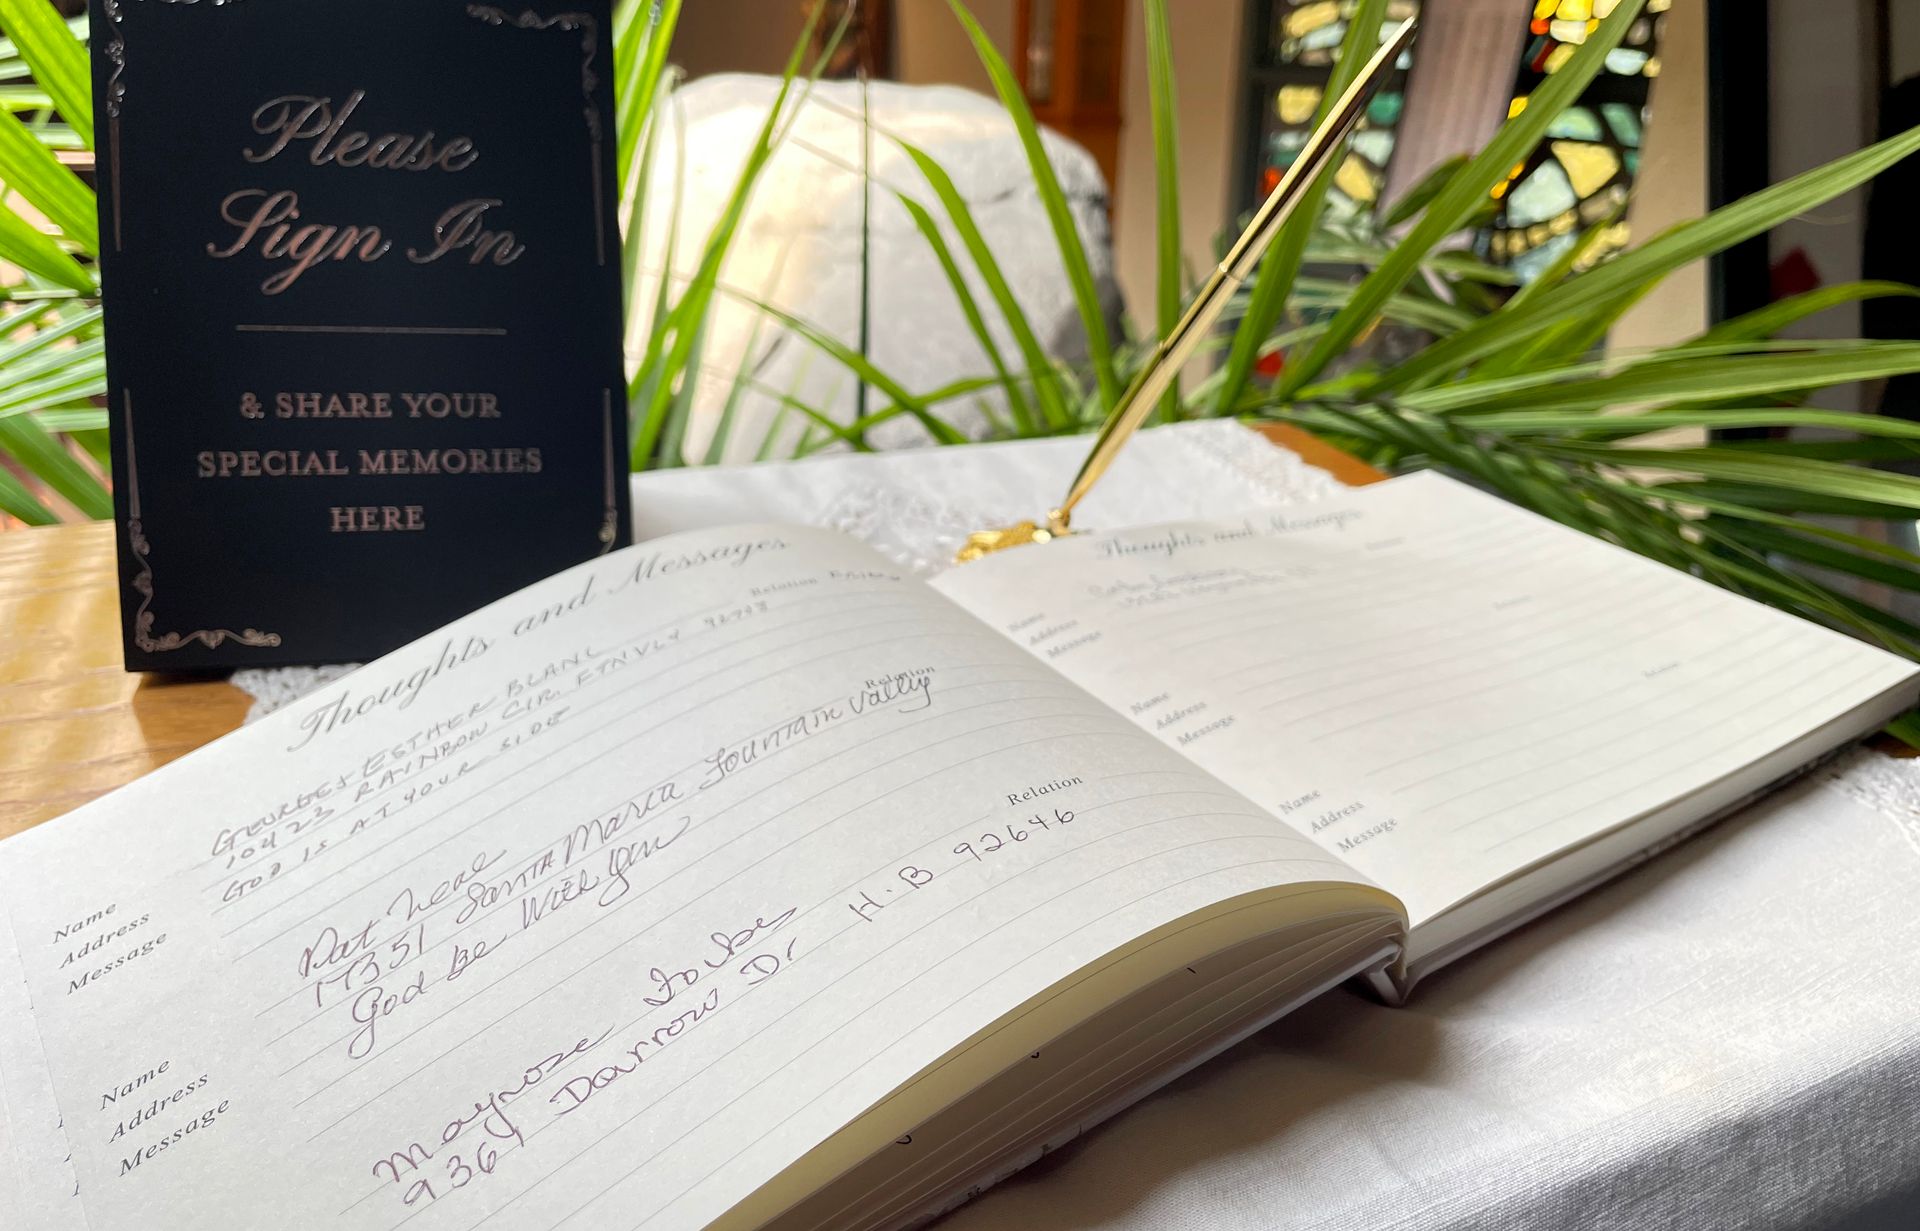 Please
Sign In
& SHARE YOUR
SPECIAL MEMORIES
HERE
Thoughts and Messages
Relation
GEORGE & ESTHER BLANC
10423 RAINBOW CIR. FTN VLY 92708
GOD IS AT YOUR SIDE
Name
Address
Message
Relation
Pat Neal
17351 Santa Maria Fountain Valley
God Be With you
Name
Address
Message
Relation
Mayrose Forbes
9361 Darrow Dr H.B 92646
Thoughts and Messages
Name
Address
Message
Name
Address
Message
Name
Address
Message